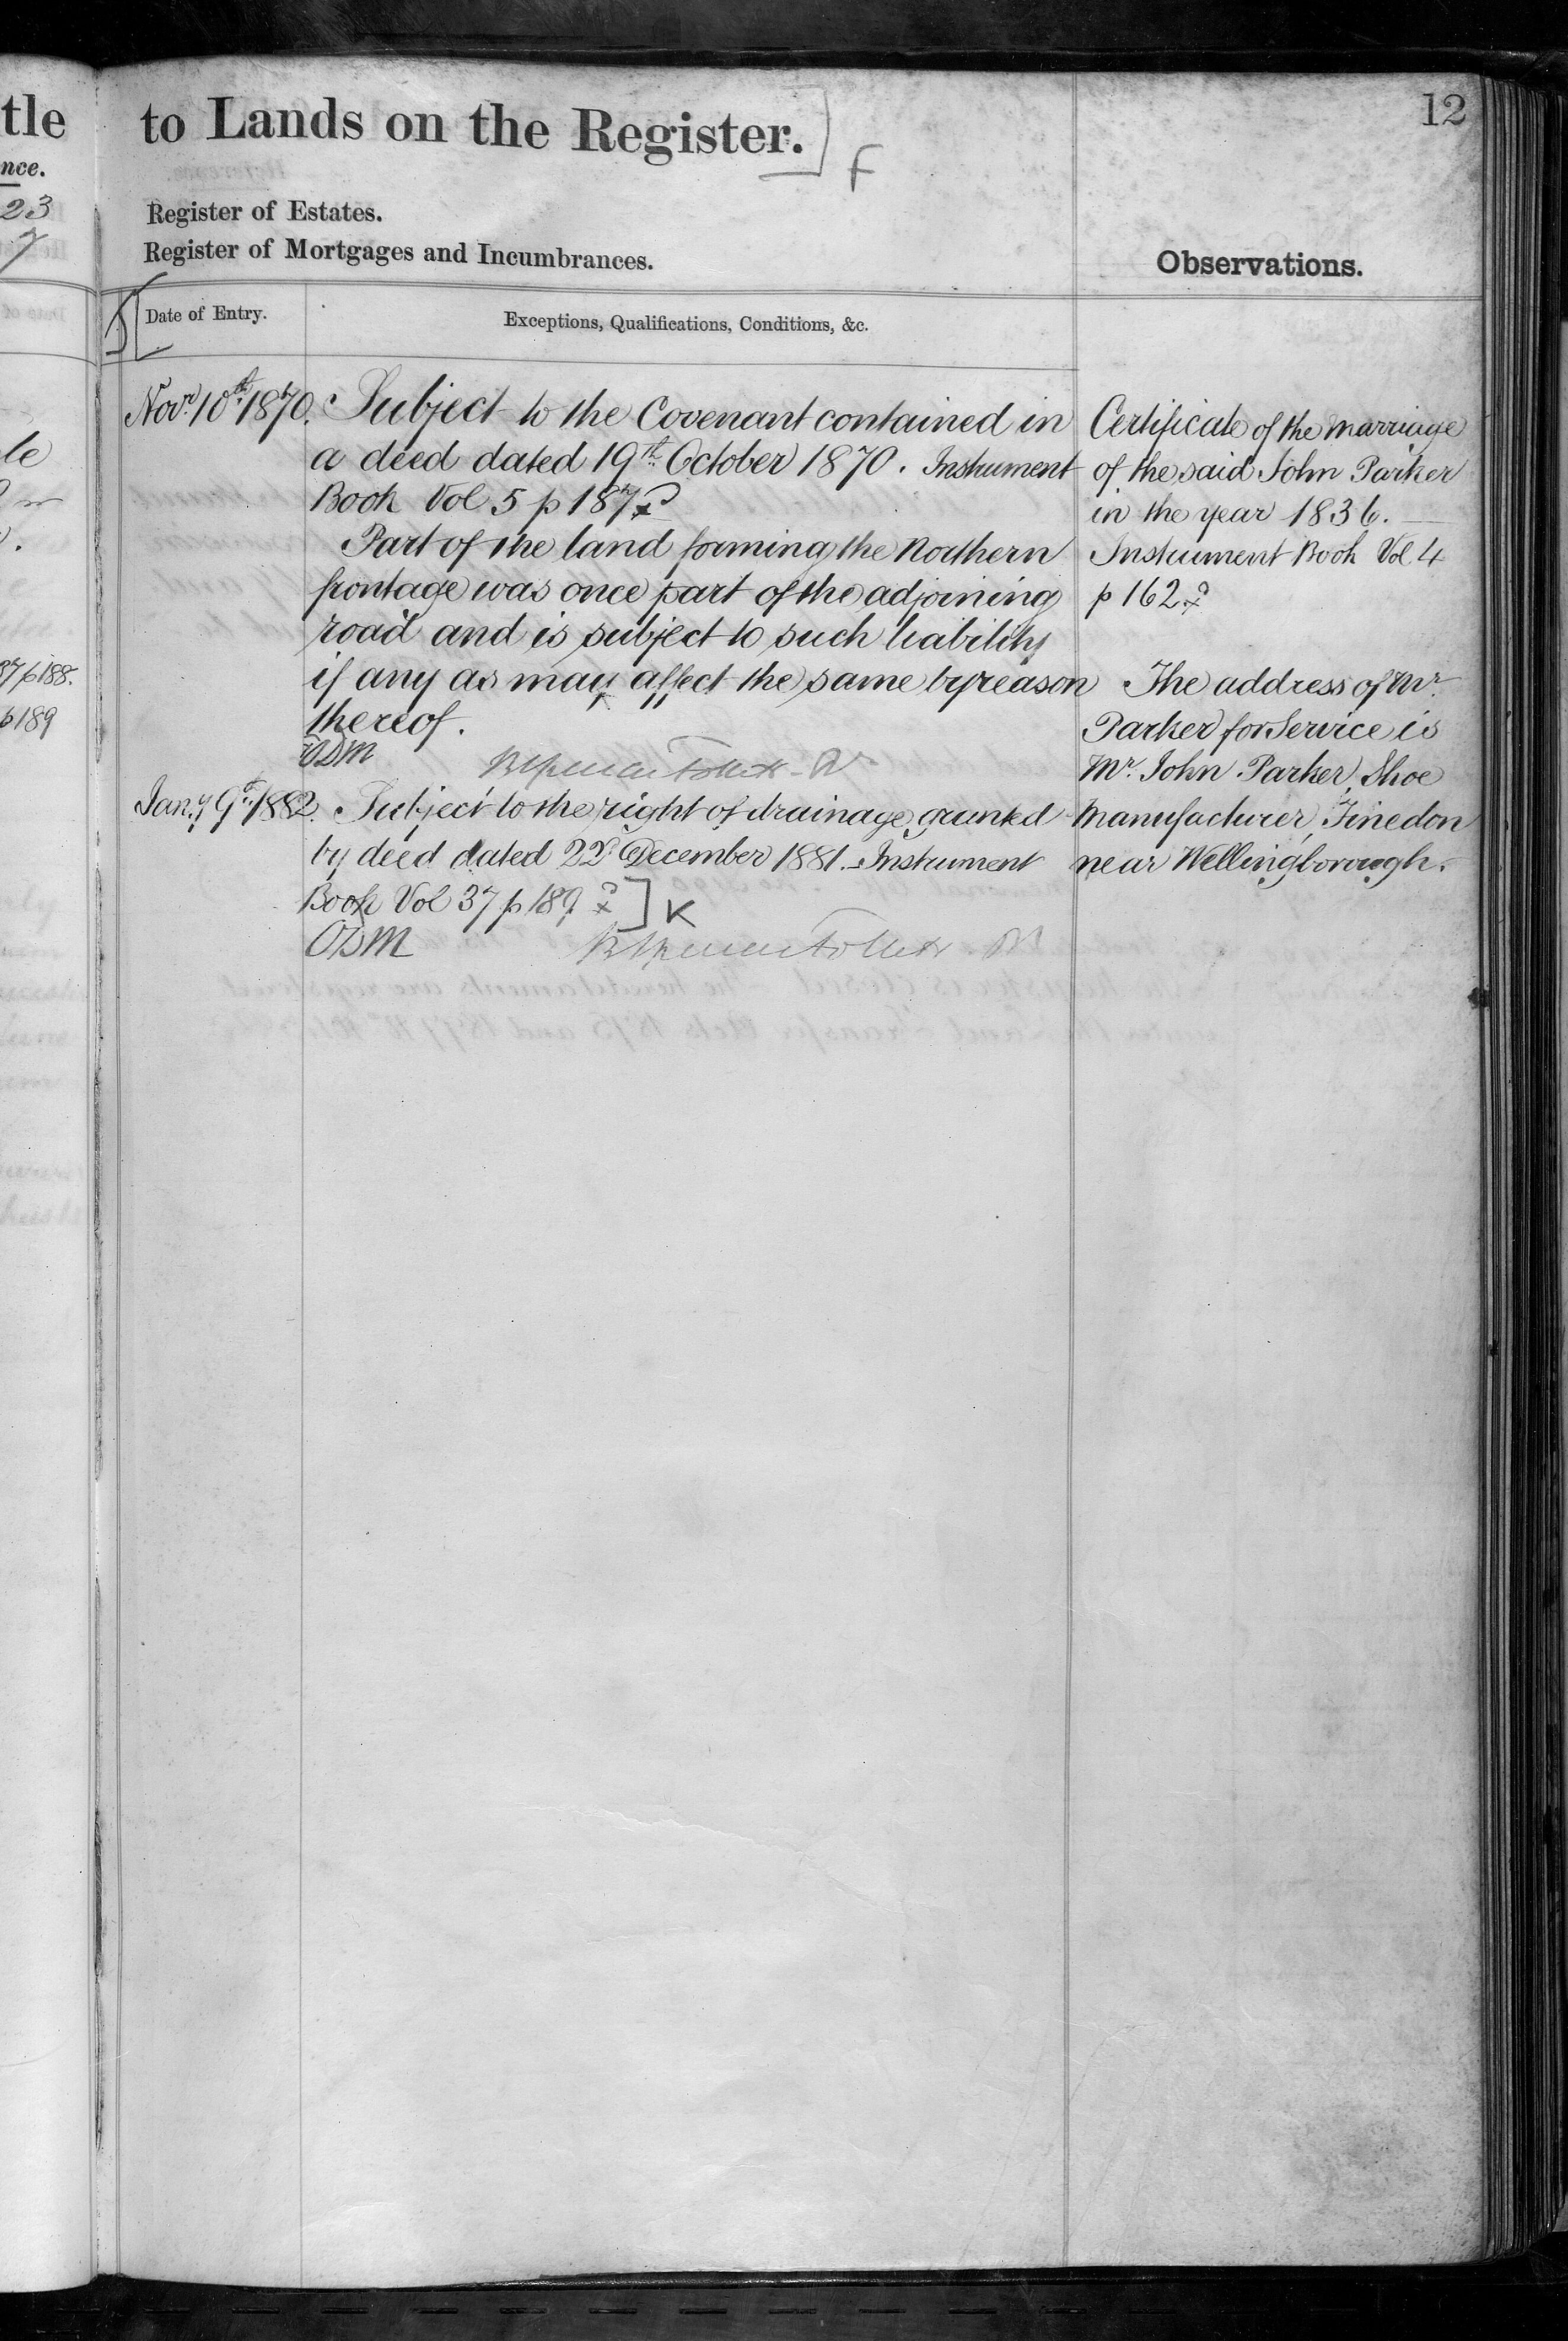 12
tle
to Lands on the Register.
F
nce.
23
7
Register of Estates.
Register of Mortgages and Incumbrances.
Observations.
Date of Entry.
Exceptions, Qualifications, Conditions, &c.
Novr. 10th. 1870. Subject to the Covenant contained in
a deed dated 19th. October 1870. Instrument
Book Vol 5 p 187
Part of the land forming the Northern
frontage was once part of the adjoining
road and is subject to such liability
if any as may affect the same by reason
thereof.
ODM
Jany. 9th. 1882. Subject to the right of drainage granted
by deed dated 22d. December 1881. Instrument
Book Vol 37 p 189
K
ODM
Certificate of the marriage
of the said John Parker
in the year 1836.
Instrument Book Vol. 4
p 162
The address of Mr.
Parker for Service is
Mr. John Parker, Shoe
Manufacturer, Finedon
near Wellingborough.
le
37 p 188.
p 189